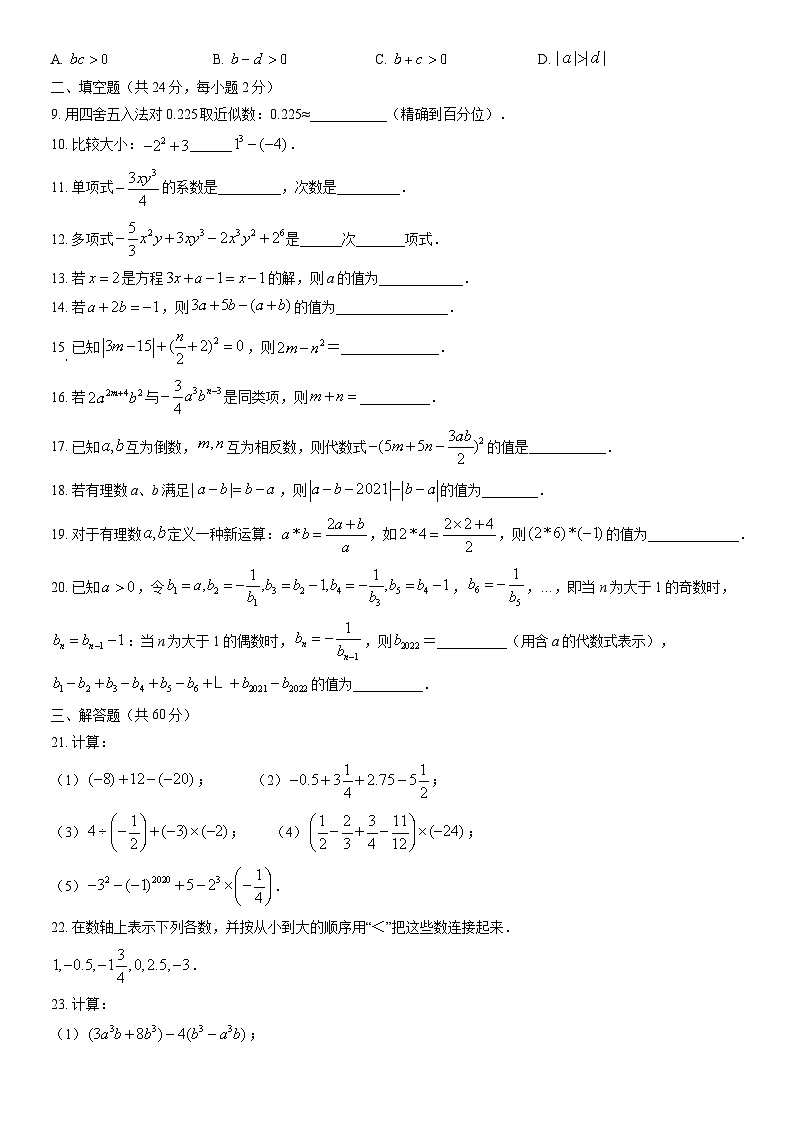 A. bc > 0 B. b − d > 0 C. b + c > 0 D. | a |>| d |
二、填空题（共 24 分，每小题 2 分）
9. 用四舍五入法对 0.225 取近似数：0.225≈___________（精确到百分位）.
10. 比较大小：−2² + 3______1³ − (−4)．
11. 单项式 −3xy³/4 的系数是_________，次数是_________．
12. 多项式 −5/3 x²y + 3xy³ − 2x³y² + 2⁶ 是______次_______项式．
13. 若 x = 2 是方程 3x + a − 1 = x − 1 的解，则 a 的值为____________．
14. 若 a + 2b = −1，则 3a + 5b − (a + b) 的值为________________．
15. 已知 |3m − 15| + (n/2 + 2)² = 0，则 2m − n²＝______________．
16. 若 2a²ᵐ⁺⁴b² 与 −3/4 a³bⁿ⁻³ 是同类项，则 m + n = __________．
17. 已知 a, b 互为倒数，m, n 互为相反数，则代数式 −(5m + 5n − 3ab/2)² 的值是___________．
18. 若有理数 a、b 满足 | a − b |= b − a，则 |a − b − 2021| − |b − a| 的值为________．
19. 对于有理数 a, b 定义一种新运算：a * b = (2a + b)/a，如 2 * 4 = (2×2 + 4)/2，则 (2 * 6) * (−1) 的值为_____________．
20. 已知 a > 0，令 b₁ = a, b₂ = −1/b₁, b₃ = b₂ − 1, b₄ = −1/b₃, b₅ = b₄ − 1，b₆ = −1/b₅，…，即当 n 为大于 1 的奇数时，
bₙ = bₙ₋₁ − 1：当 n 为大于 1 的偶数时，bₙ = −1/bₙ₋₁，则 b₂₀₂₂＝__________（用含 a 的代数式表示），
b₁ − b₂ + b₃ − b₄ + b₅ − b₆ + L + b₂₀₂₁ − b₂₀₂₂ 的值为__________．
三、解答题（共 60 分）
21. 计算：
（1）(−8) + 12 − (−20)； （2）−0.5 + 3 1/4 + 2.75 − 5 1/2；
（3）4 ÷ (−1/2) + (−3) × (−2)； （4）(1/2 − 2/3 + 3/4 − 11/12) × (−24)；
（5）−3² − (−1)²⁰²⁰ + 5 − 2³ × (−1/4)．
22. 在数轴上表示下列各数，并按从小到大的顺序用“＜”把这些数连接起来．
1, −0.5, −1 3/4, 0, 2.5, −3．
23. 计算：
（1）(3a³b + 8b³) − 4(b³ − a³b)；